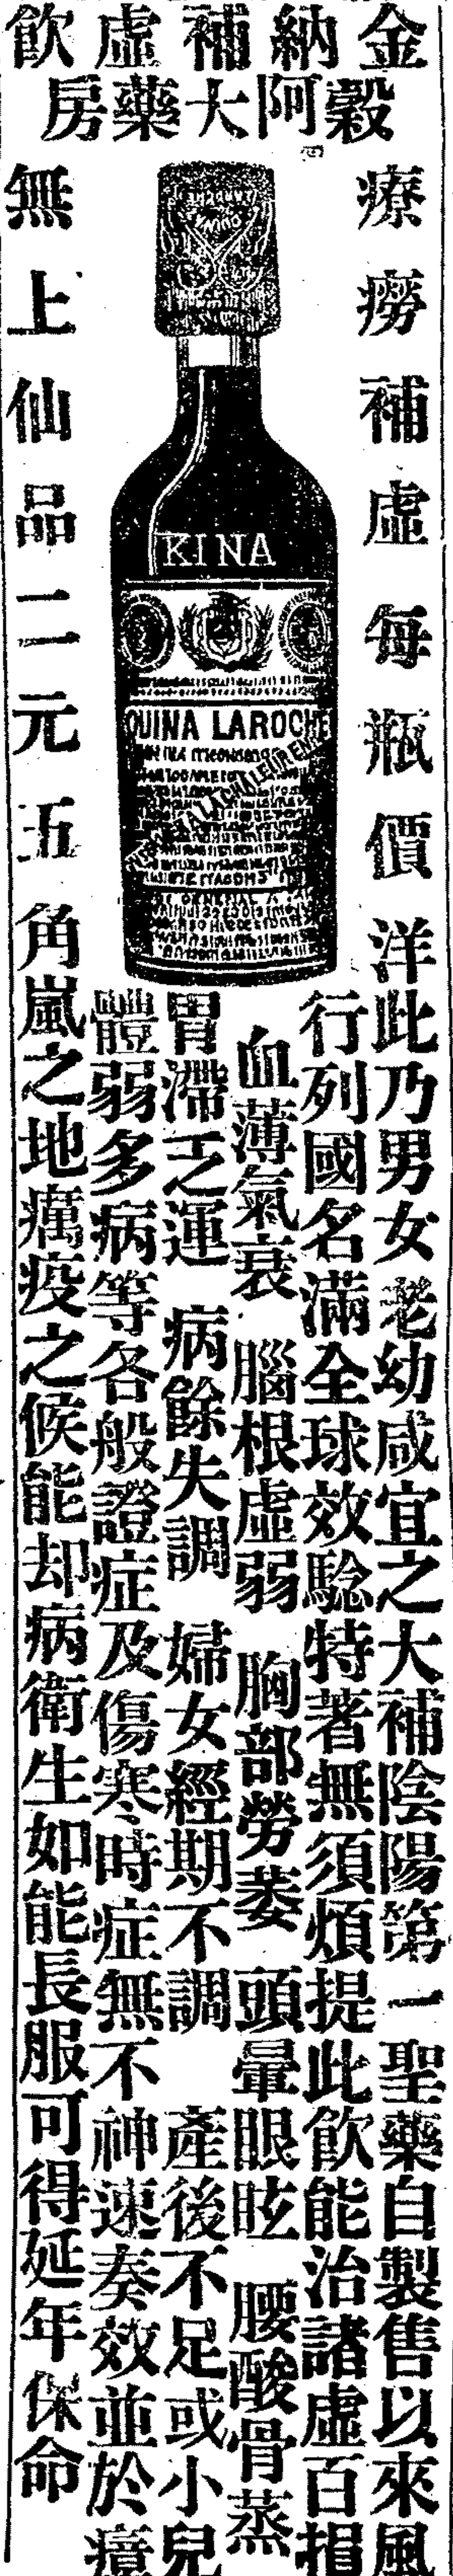 金納補虛飲
穀阿大藥房
療癆補虛每瓶價洋
無上仙品二元五角
KINA
QUINA LAROCHE
此乃男女老幼咸宜之大補陰陽第一聖藥自製售以來風
行列國名滿全球效騐特著無須煩提此飲能治諸虛百損
血薄氣衰 腦根虛弱 胸部勞萎 頭暈眼眩 腰酸骨蒸
胃滯乏運 病餘失調 婦女經期不調 產後不足或小兒
體弱多病等各般證症及傷寒時症無不神速奏效並於瘴
嵐之地癘疫之候能却病衛生如能長服可得延年保命